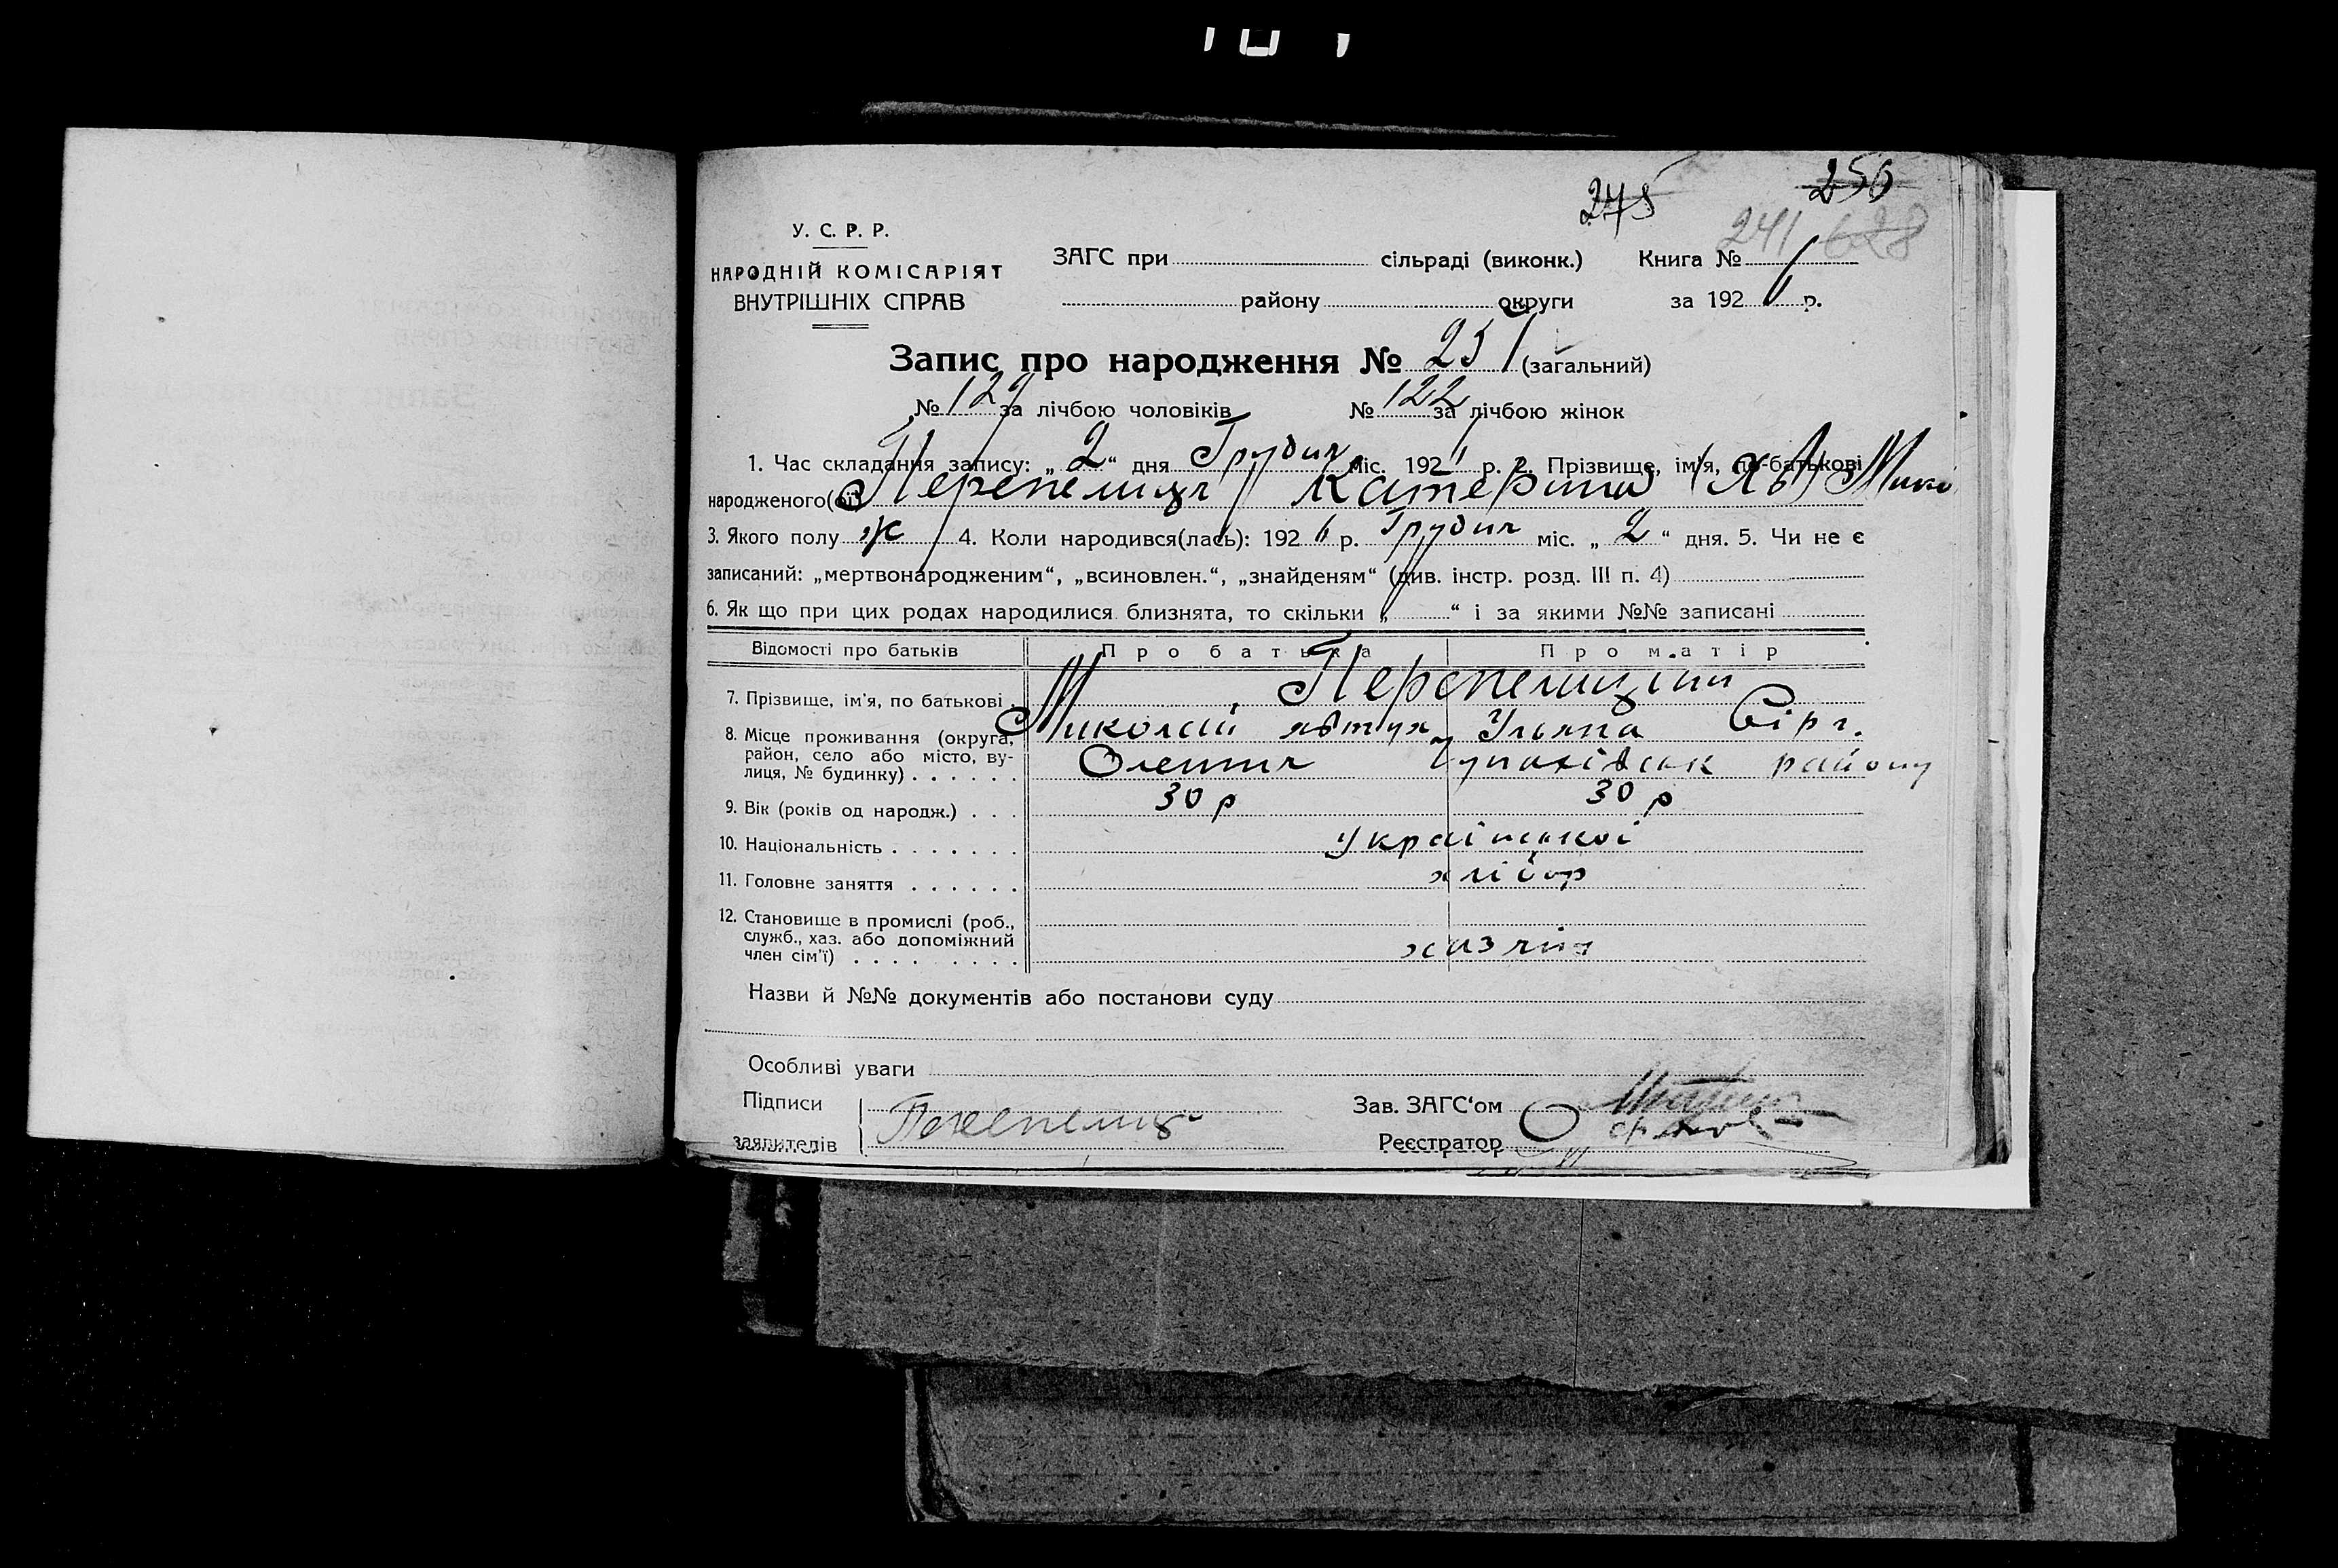 275 256
241 628
У. С. Р. Р.
НАРОДНІЙ КОМІСАРІЯТ
ВНУТРІШНІХ СПРАВ
ЗАГС при сільраді (виконк.) Книга №
району округи за 192 6 р.
Запис про народження № 251 (загальний)
№ 129 за лічбою чоловіків № 122 за лічбою жінок
1. Час складання запису: „ 2 “ дня Грудня міс. 192 6 р. 2. Прізвище, ім'я, по-батькові
народженого(ої) Перепелиця Катерина
3. Якого полу ж 4. Коли народився(лась): 192 6 р. Грудня міс. „ 2 “ дня. 5. Чи не є
записаний: „мертвонародженим“, „всиновлен.“, „знайденям“ (див. інстр. розд. III п. 4)
6. Як що при цих родах народилися близнята, то скільки „ “ і за якими №№ записані
Відомості про батьків Про батька Про матір
7. Прізвище, ім'я, по батькові
8. Місце проживання (округа, район, село або місто, вулиця, № будинку)
Миколай Уляна Сірг.
району
9. Вік (років од народж.) 30 р 30 р
10. Національність Української
11. Головне заняття хлібор
12. Становище в промислі (роб., служб., хаз. або допоміжний член сім'ї)
хазяін
Назви й №№ документів або постанови суду
Особливі уваги
Підписи
заявителів
Перепелиця
Зав. ЗАГС'ом
Реєстратор